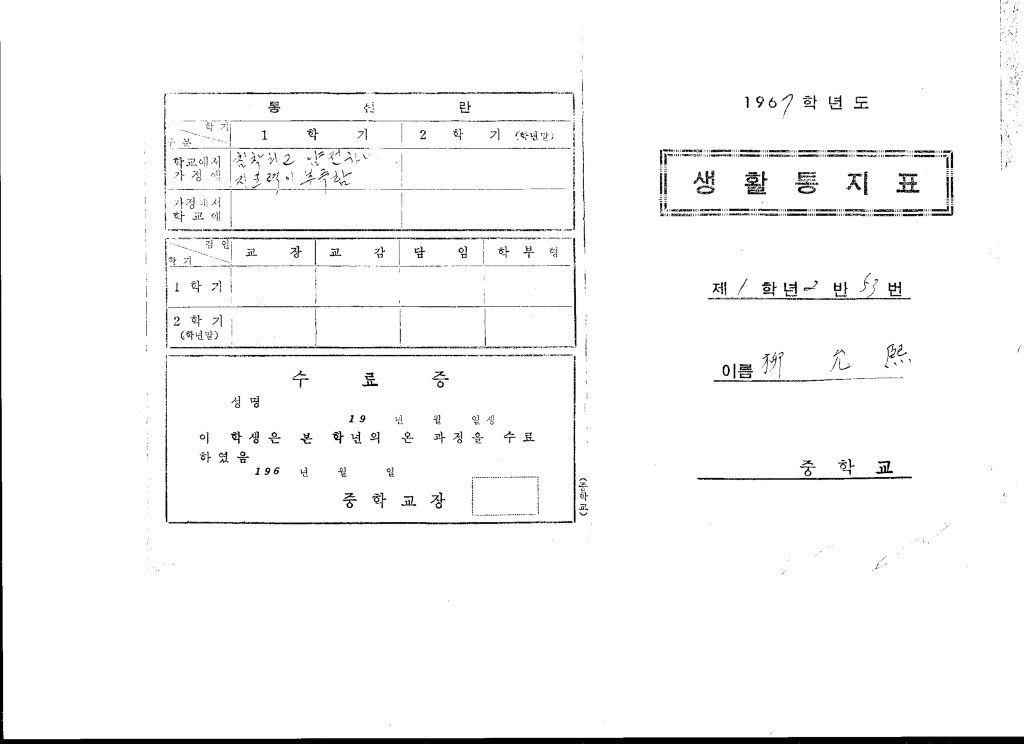 통 신 란
학 기
구 분
1 학 기
2 학 기 (학년말)
학교에서
가 정 에
침착하고 얌전하나
지도력이 부족함
가정에서
학 교 에
검 인
학 기
교 장
교 감
담 임
학 부 형
1 학 기
2 학 기
(학년말)
수 료 증
성 명
19 년 월 일생
이 학생은 본 학년의 온 과정을 수료
하였음
196 년 월 일
중 학 교 장
(중학교)
1967 학 년 도
생 활 통 지 표
제 1 학년 2 반 53 번
이름 柳 允 熙
중 학 교